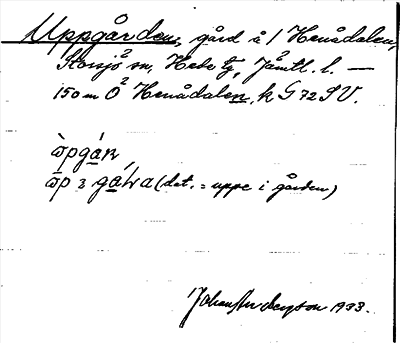 Uppgården, gård å / Henådalen,
Storsjö sn, Hede tg, Jämtl. l. —
150 m O² Henådalen, k G 72 SV.
òpgán,
òp ɜ gáɴa (det. = uppe i gården)
Johan Anderzson 1933.